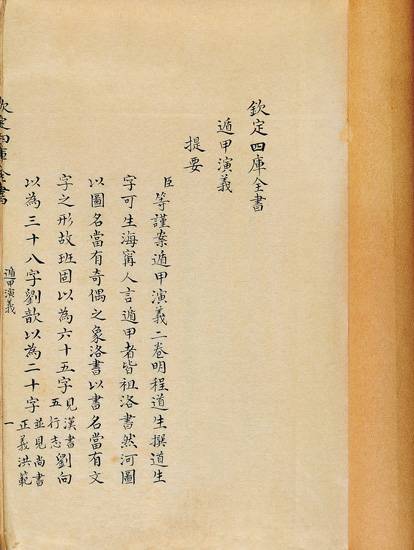 欽定四庫全書
遁甲演義
提要
臣等謹案遁甲演義二卷明程道生撰道生
字可生海寗人言遁甲者皆祖洛書然河圖
以圖名當有奇偶之象洛書以書名當有文
字之形故班固以為六十五字見漢書五行志劉向
以為三十八字劉歆以為二十字並見尚書正義洪範
欽定四庫全書
遁甲演義
一